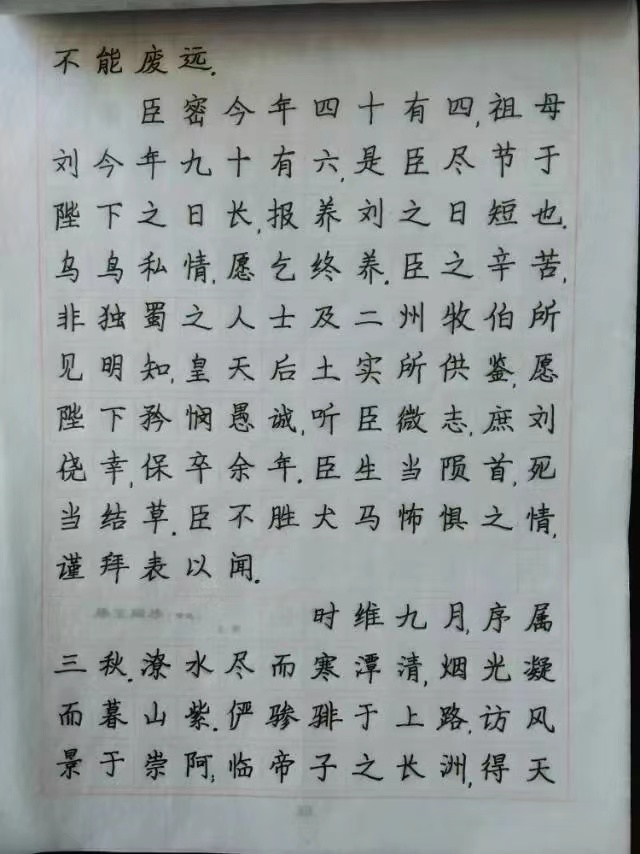 不能废远.
臣密今年四十有四,祖母
刘今年九十有六,是臣尽节于
陛下之日长,报养刘之日短也.
乌鸟私情,愿乞终养.臣之辛苦,
非独蜀之人士及二州牧伯所
见明知,皇天后土实所供鉴,愿
陛下矜悯愚诚,听臣微志,庶刘
侥幸,保卒余年.臣生当陨首,死
当结草.臣不胜犬马怖惧之情,
谨拜表以闻.
时维九月,序属
三秋.潦水尽而寒潭清,烟光凝
而暮山紫.俨骖騑于上路,访风
景于崇阿;临帝子之长洲,得天